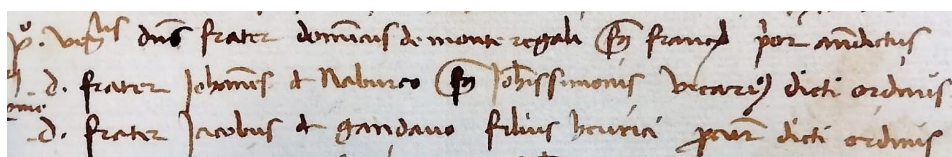 p.º ven.lis dn̄s frater dominicus de monte regali fq̄ francī prior antedictus
d. frater Johannes de Naburco fq̄ Joh̄issimonis vicariꝯ dicti ordinis
d. frater Jacobus de gandavo filius henrici dicti ordinis